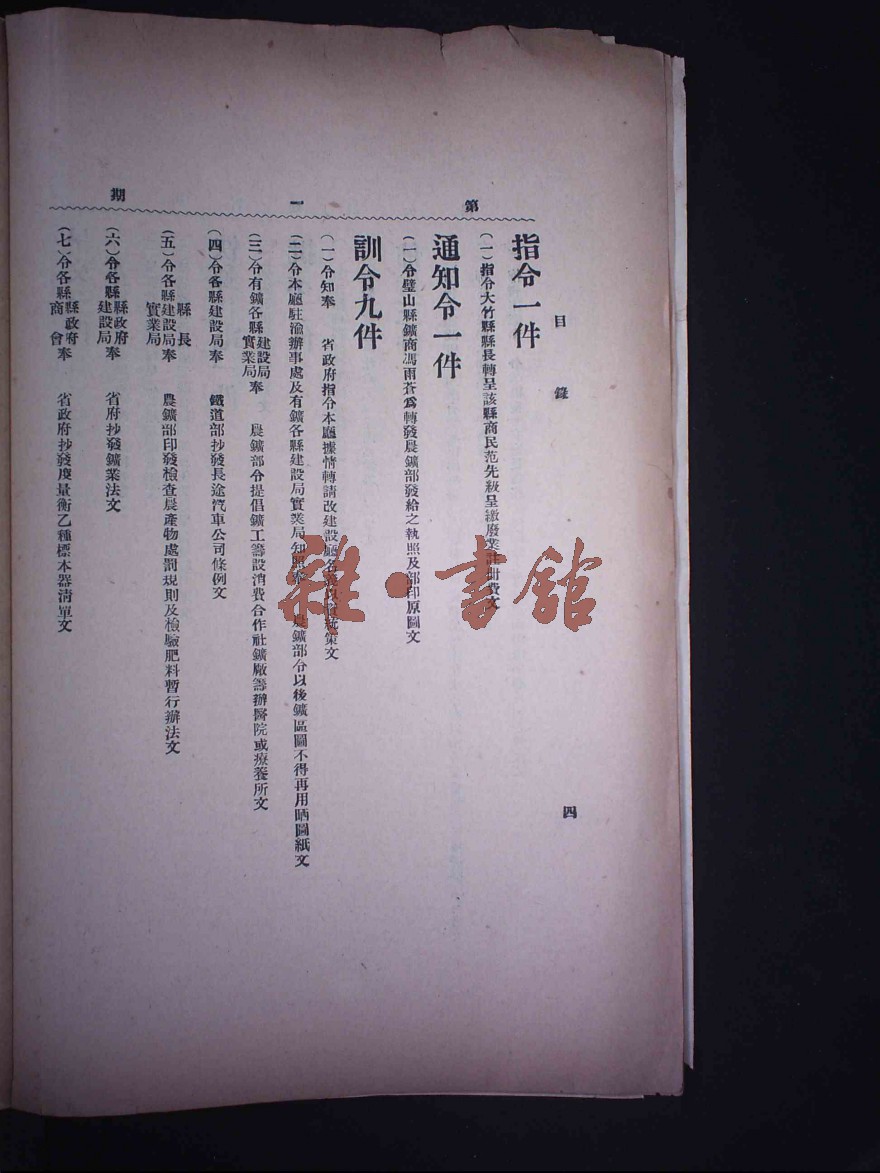 目錄
四
第一期
指令一件
(一)指令大竹縣縣長轉呈該縣商民范先級呈繳廢業註冊費文
通知令一件
(一)令璧山縣鑛商馮雨蒼爲轉發農鑛部發給之執照及部印原圖文
訓令九件
(一)令知奉 省政府指令本廳據情轉請改建設廳名
文
(二)令本廳駐渝辦事處及有鑛各縣建設局實業局知照奉 農鑛部令以後鑛區圖不得再用晒圖紙文
(三)令有鑛各縣建設局實業局奉 農鑛部令提倡鑛工籌設消費合作社鑛廠籌辦醫院或療養所文
(四)令各縣建設局奉 鐵道部抄發長途汽車公司條例文
(五)令各縣縣長建設局實業局奉 農鑛部印發檢查農產物處罰規則及檢驗肥料暫行辦法文
(六)令各縣縣政府建設局奉 省府抄發鑛業法文
(七)令各縣縣政府商會奉 省政府抄發度量衡乙種標本器清單文
雜·書館